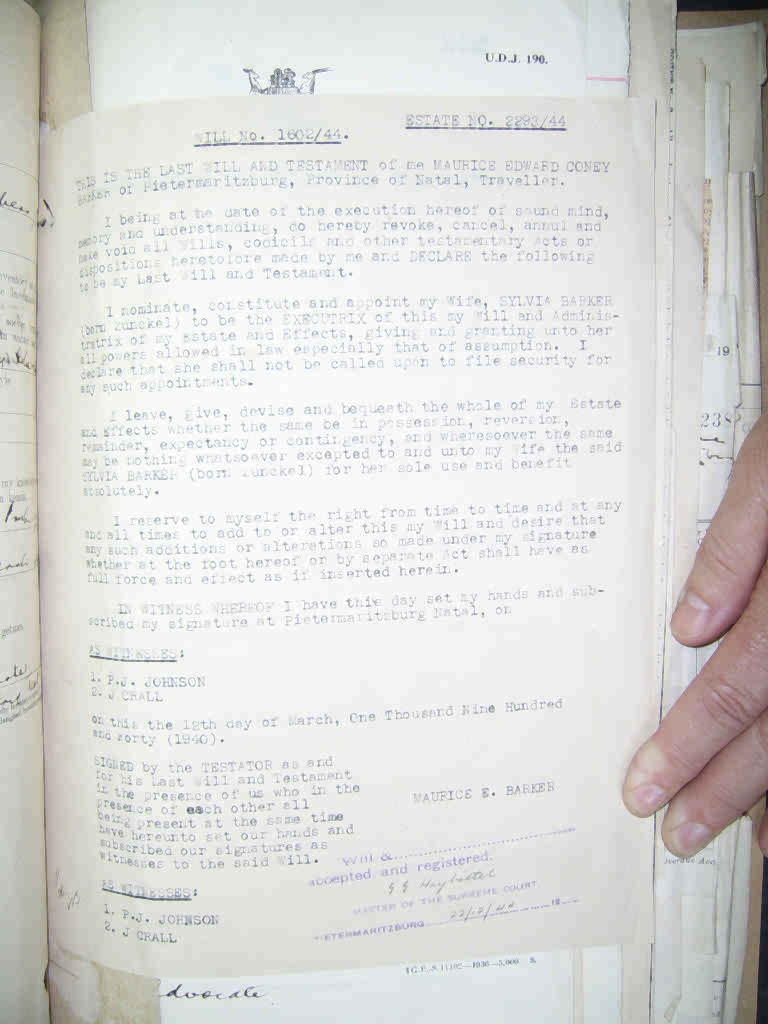 U.D.J. 190.
WILL No. 1602/44.
ESTATE NO. 2293/44
THIS IS THE LAST WILL AND TESTAMENT of me MAURICE EDWARD CONEY
Barker of Pietermaritzburg, Province of Natal, Traveller.
I being at he date of the execution hereof of sound mind,
memory and understanding, do hereby revoke, cancel, annul and
make void all Wills, codicils and other testamentary Acts or
dispositions heretofore made by me and DECLARE the following
to be my Last Will and Testament.
I nominate, constitute and appoint my Wife, SYLVIA BARKER
(born Zunckel) to be the EXECUTRIX of this my Will and Adminis-
tratrix of my Estate and Effects, giving and granting unto her
all powers allowed in law especially that of assumption. I
declare that she shall not be called upon to file security for
any such appointments.
I leave, give, devise and bequeath the whole of my Estate
and Effects whether the same be in possession, reversion,
remainder, expectancy or contingency, and wheresoever the same
may be nothing whatsoever excepted to and unto my Wife the said
SYLVIA BARKER (born Zunckel) for her sole use and benefit
absolutely.
I reserve to myself the right from time to time and at any
and all times to add to or alter this my Will and desire that
any such additions or alterations so made under my signature
whether at the foot hereof or by separate Act shall have as
full force and effect as if inserted herein.
IN WITNESS WHEREOF I have this day set my hands and sub-
scribed my signature at Pietermaritzburg Natal, on
AS WITNESSES:
1. P.J. JOHNSON
2. J CRALL
on this the 12th day of March, One Thousand Nine Hundred
and Forty (1940).
SIGNED by the TESTATOR as and
for his Last Will and Testament
in the presence of us who in the
presence of each other all
being present at the same time
have hereunto set our hands and
subscribed our signatures as
witnesses to the said Will.
MAURICE E. BARKER
Will &
accepted and registered.
MASTER OF THE SUPREME COURT
PIETERMARITZBURG 22/12/44 19
AS WITNESSES:
1. P.J. JOHNSON
2. J CRALL
advocate
19
238